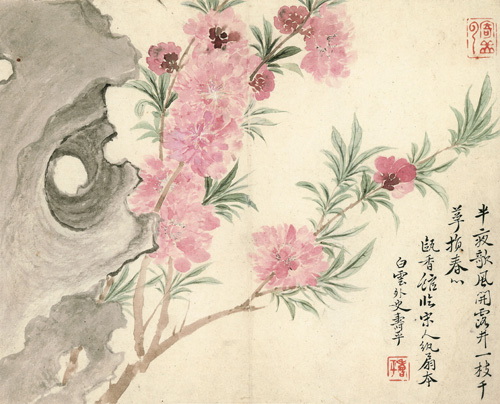 半夜歌風開露井一枝千
萼揽春心
甌香館臨宋人紈扇本
白雲外史壽平